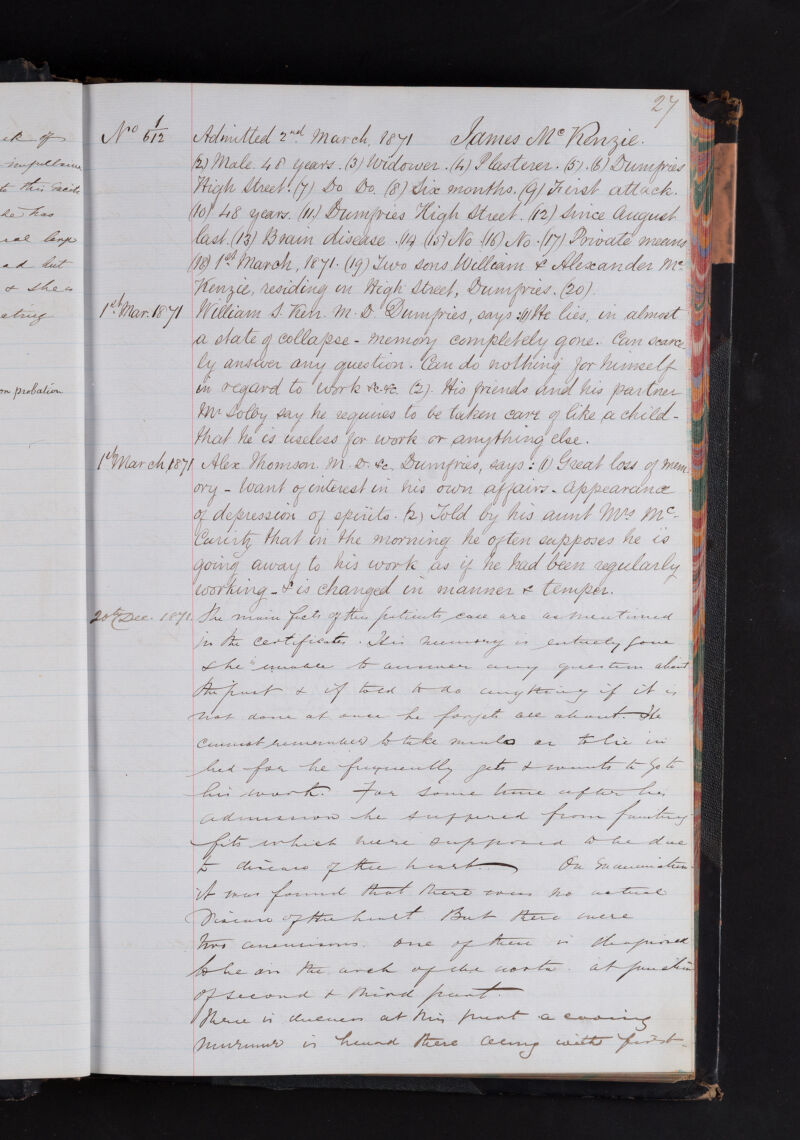 27
No 1/612 Admitted 2nd March, 1871 James Mc Kenzie.
(2) Male 48 years. (3) Widower. (4) Plasterer. (5). (6) Dumfries
High Street. (7) Do Do. (8) Six months. (9) First attack.
(10) 48 years. (11) Dumfries High Street. (12) Since August
last. (13) Brain disease. (14) (15) No (16) No. (17) Private means
(18) 1st March, 1871. (19) Two sons William & Alexander Mc-
Kenzie, residing in High Street, Dumfries. (20).
1st Mar. 1871 William S. Kerr M. D. Dumfries, says: (1) He lies, in almost
a state of collapse - memory completely gone. Can scarce-
ly answer any question. Can do nothing for himself
in regard to work &c &c. (2) His friends and his partner
Mr say he requires to be taken care of like a child -
that he is useless for work or anything else.
1st March, 1871 Alex. Thomson M. D. &c. Dumfries, says: (1) Great loss of mem-
ory - want of interest in his own affairs - appearance
of depression of spirits. (2) Told by his aunt Mrs Mc-
that in the morning he often supposes he is
going away to his work as if he had been regularly
working - & is changed in manner & temper.
20th Dec. 1871. The main facts of the patients case are as mentioned
in the certificates. His memory is entirely gone
& he is unable to answer any question about
the past & if told to do anything if it is
not done at once he forgets all about. He
cannot remember to take meals or to lie in
bed for he frequently gets & wants to go to
his work. For some time after his
admission he suffered from fainting
fits which were supposed to be due
to disease of the heart. On examination
it was found that there was no actual
Disease of the heart But there were
two aneurisms. one of them is diagnosed
to be in the arch of the aorta at junction
of second & third part.
There is dulness at this point a
murmur is heard there with first
ck of
to this
he has
ad but
& she is
on probation